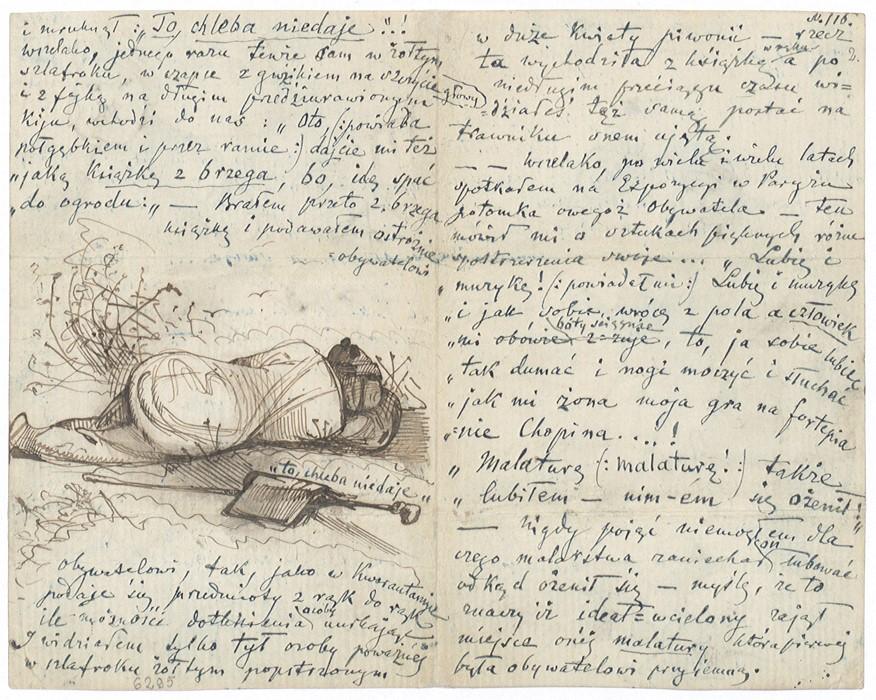 i mruknął: „To, chleba niedaje"!!
wszelako, jednego razu tenże sam w żółtym
szlafroku, w czapce z guzikiem na szczycie
głowy
i z fajką na długim przedziurawionym
kiju, wchodzi do nas: „Oto, (:powiada
półgębkiem i przez ramie:) dajcie mi też
„jaką Książkę z brzega, bo, idę spać
„do ogrodu:" — Brałem przeto z brzega
książkę i podawałem ostrożnie
obywatelowi
„to, chleba niedaje"
obywatelowi, tak, jako w Kwarantannie
podaje się przedmioty z rąk do rąk
ile możności dotknienia osoby unikając
I widziałem tylko tył osoby poważnej
w szlafroku żółtym popstrzonym
6285
№ 116.
2.
w duże Kwiaty piwonii — rzecz
ta wychodziła z książką w ręku a po
niedługim przeciągu czasu wi-
=działeś tęż samą postać na
trawniku onem ujętą.
— — wszelako, po wielu i wielu latach
spotkałem na Expozycji w Paryżu
potomka owegoż Obywatela — ten
mówił mi o sztukach pięknych różne
spostrzeżenia swoje... „Lubię i
„muzykę! (:powiadał mi:) Lubię i muzykę
„i jak sobie wrócę z pola a człowiek
bóty ściągnie
„mi obówie z-zuje, to, ja sobie lubię
„tak dumać i nogi moczyć i słuchać
„jak mi żona moja gra na fortepia
„=nie Chopina....!
„Malaturę (:malaturę!:) także
„lubiłem — nim-em się ożenił!"
— Nigdy pojąć niemogłem dla
czego malarstwa zaniechał on lubować
odkąd ożenił się — myślę, że to
znaczy iż ideał=wcielony zajął
miejsce onéj malatury która pierwej
była obywatelowi przyjemną.